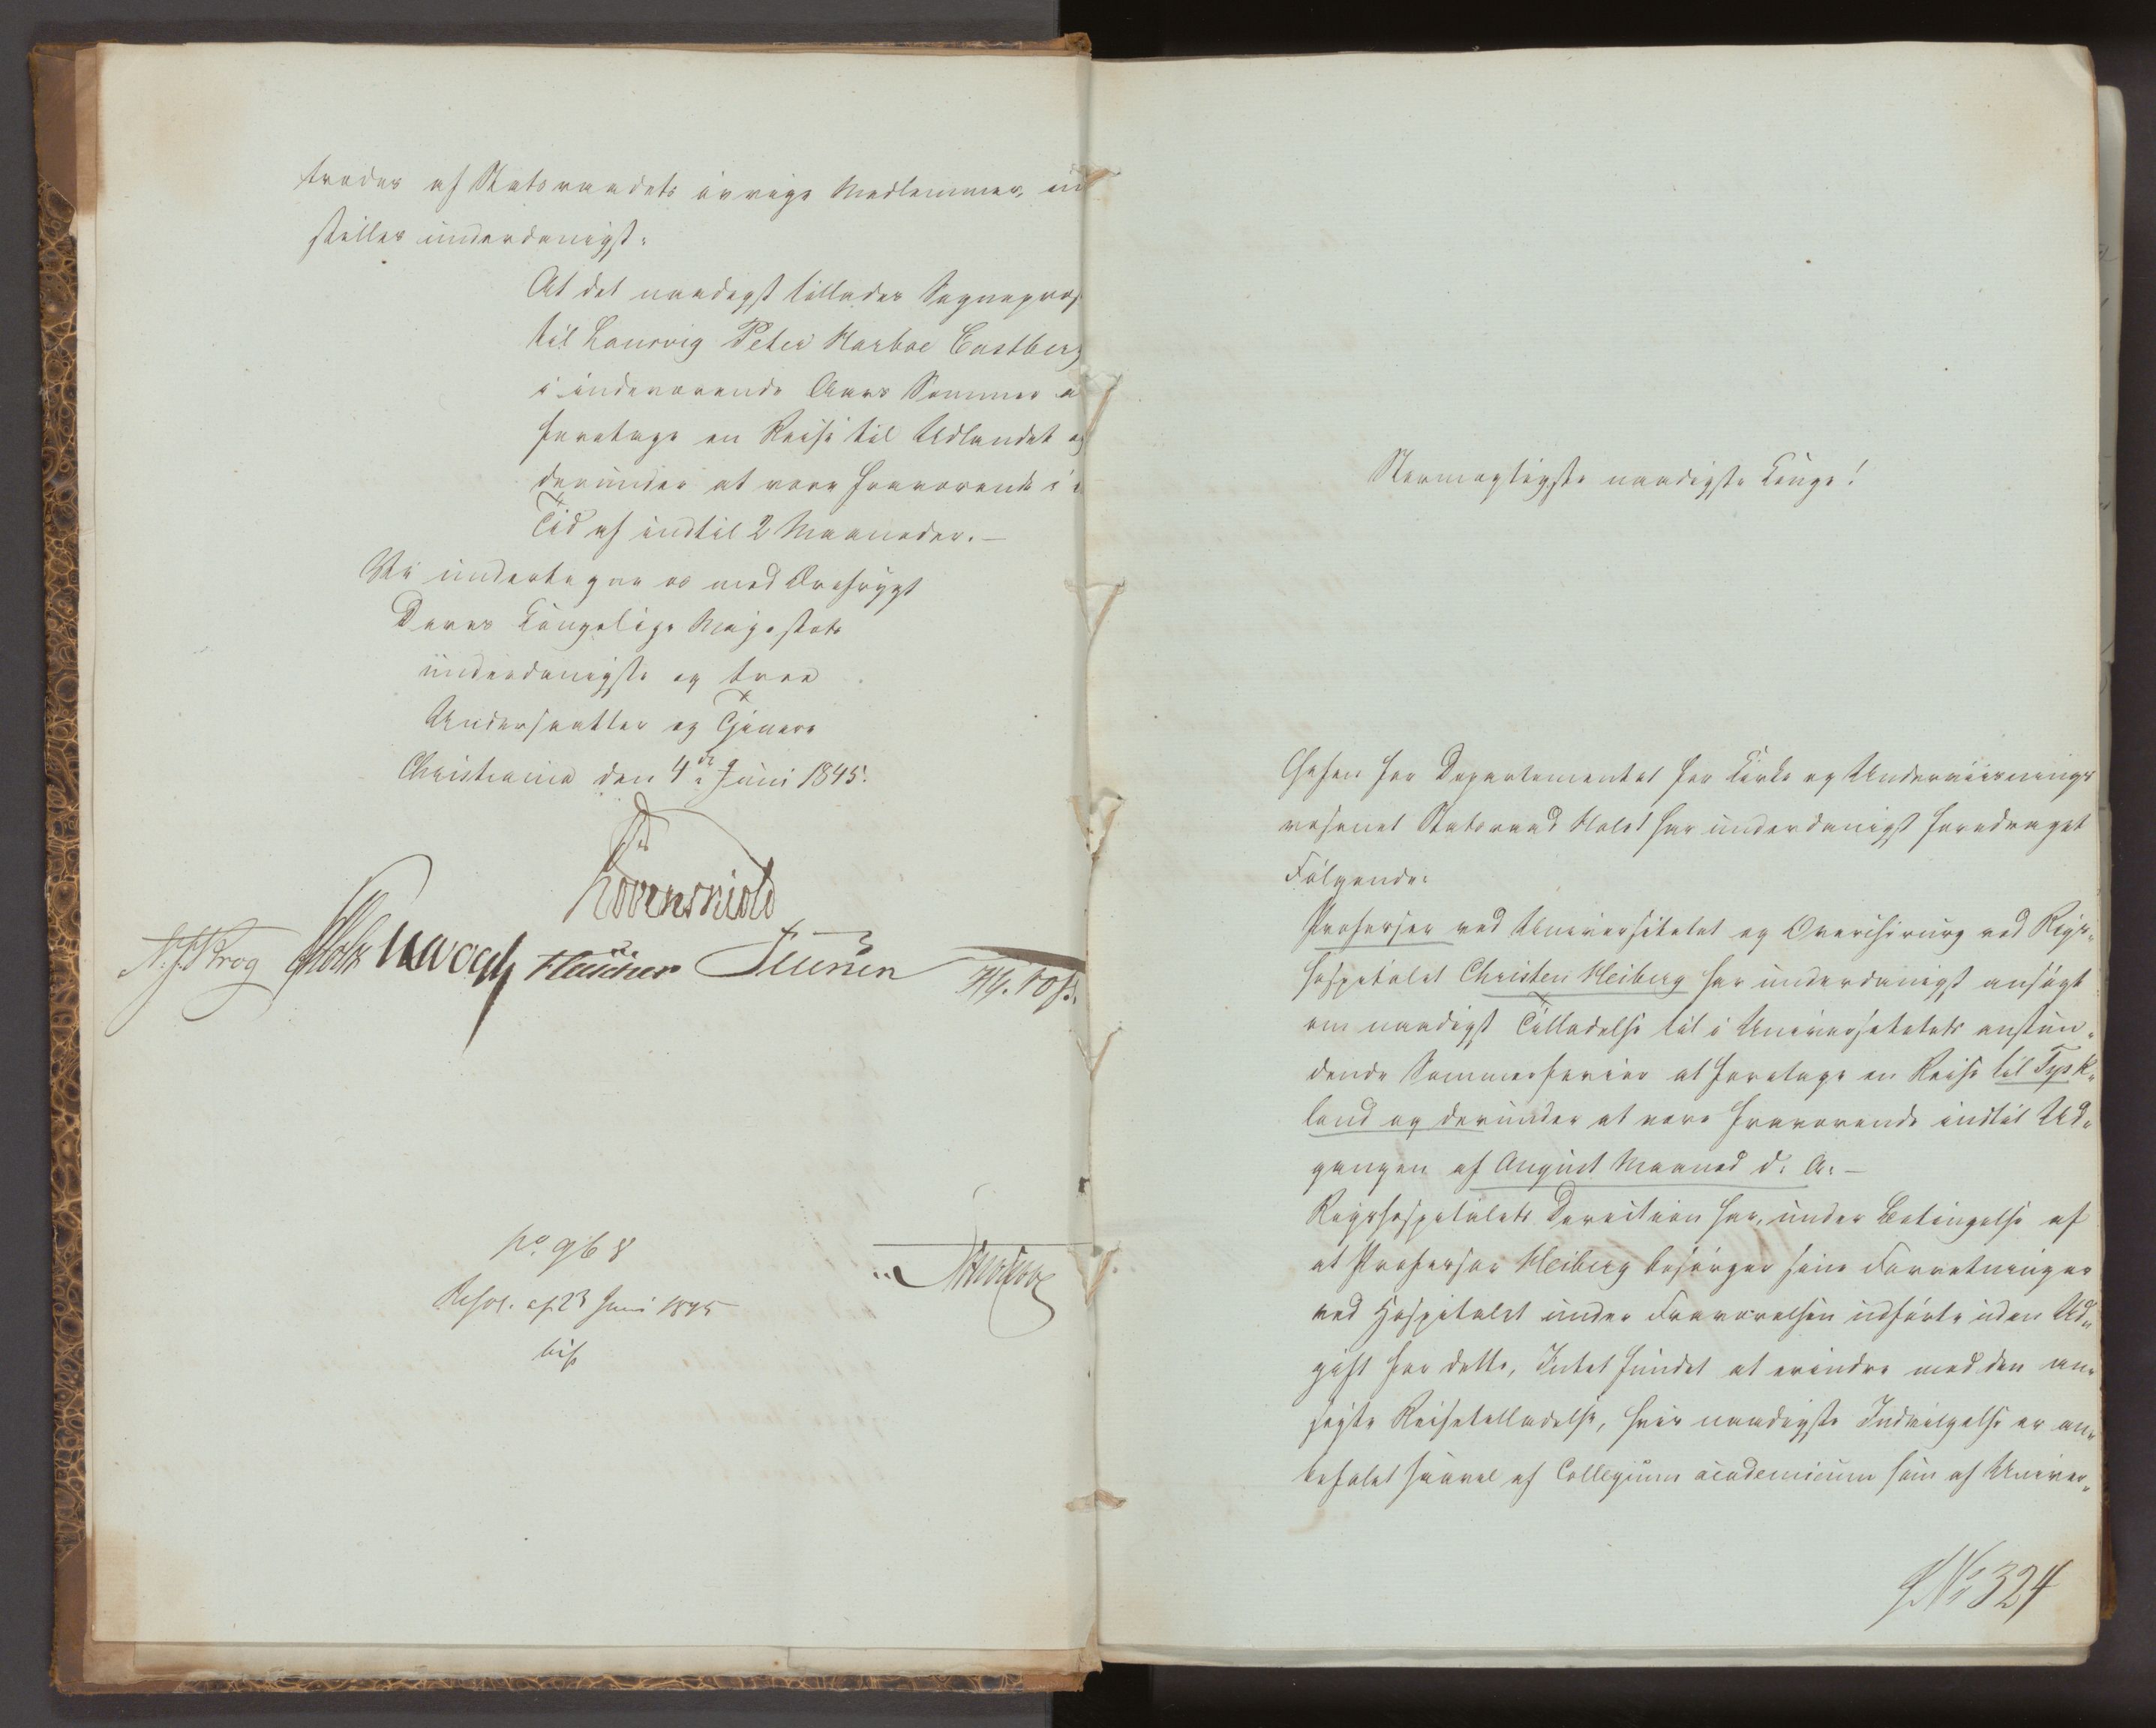 træder af Statsraadets øvrige Medlemmer, ind
stilles underdanigst:
At det naadigst tillades Sognepræst
til Laurvig Peter Harboe Castberg
i indeværende Aars Sommer at
foretage en Reise til Udlandet og
derunder at være fraværende i en
Tid af indtil 2 Maaneder. —
Vi undertegne os med Ærefrygt
Deres Kongelige Majestæts
underdanigste og troe
Undersaatter og Tjenere
Christiania den 4de Juni 1845.
Løvenskiold
N. J. Krog Holst Vogt
No. 968
Resol. af 23 Juni 1845
Stormægtigste naadigste Konge!
Chefen for Departementet for Kirke og Underviisnings
væsenet Statsraad Holst har underdanigst foredraget
Følgende:
Professor ved Universitetet og Overchirurg ved Rigs-
hospitalet Christen Heiberg har underdanigst ansøgt
om naadigst Tilladelse til i Universitetets anstun-
dende Sommerferier at foretage en Reise til Tysk-
land og derunder at være fraværende indtil Ud-
gangen af August Maaned d. A. —
Rigshospitalets Direction har, under Betingelse af
at Professor Heiberg besørger sine Forretninger
ved Hospitalet under Fraværelsen udførte uden Ud-
gift for dette, Intet fundet at erindre mod den an-
søgte Reisetilladelse, hvis naadigste Indvilgelse er an-
befalet saavel af Collegium academicum som af Univer-
No 324